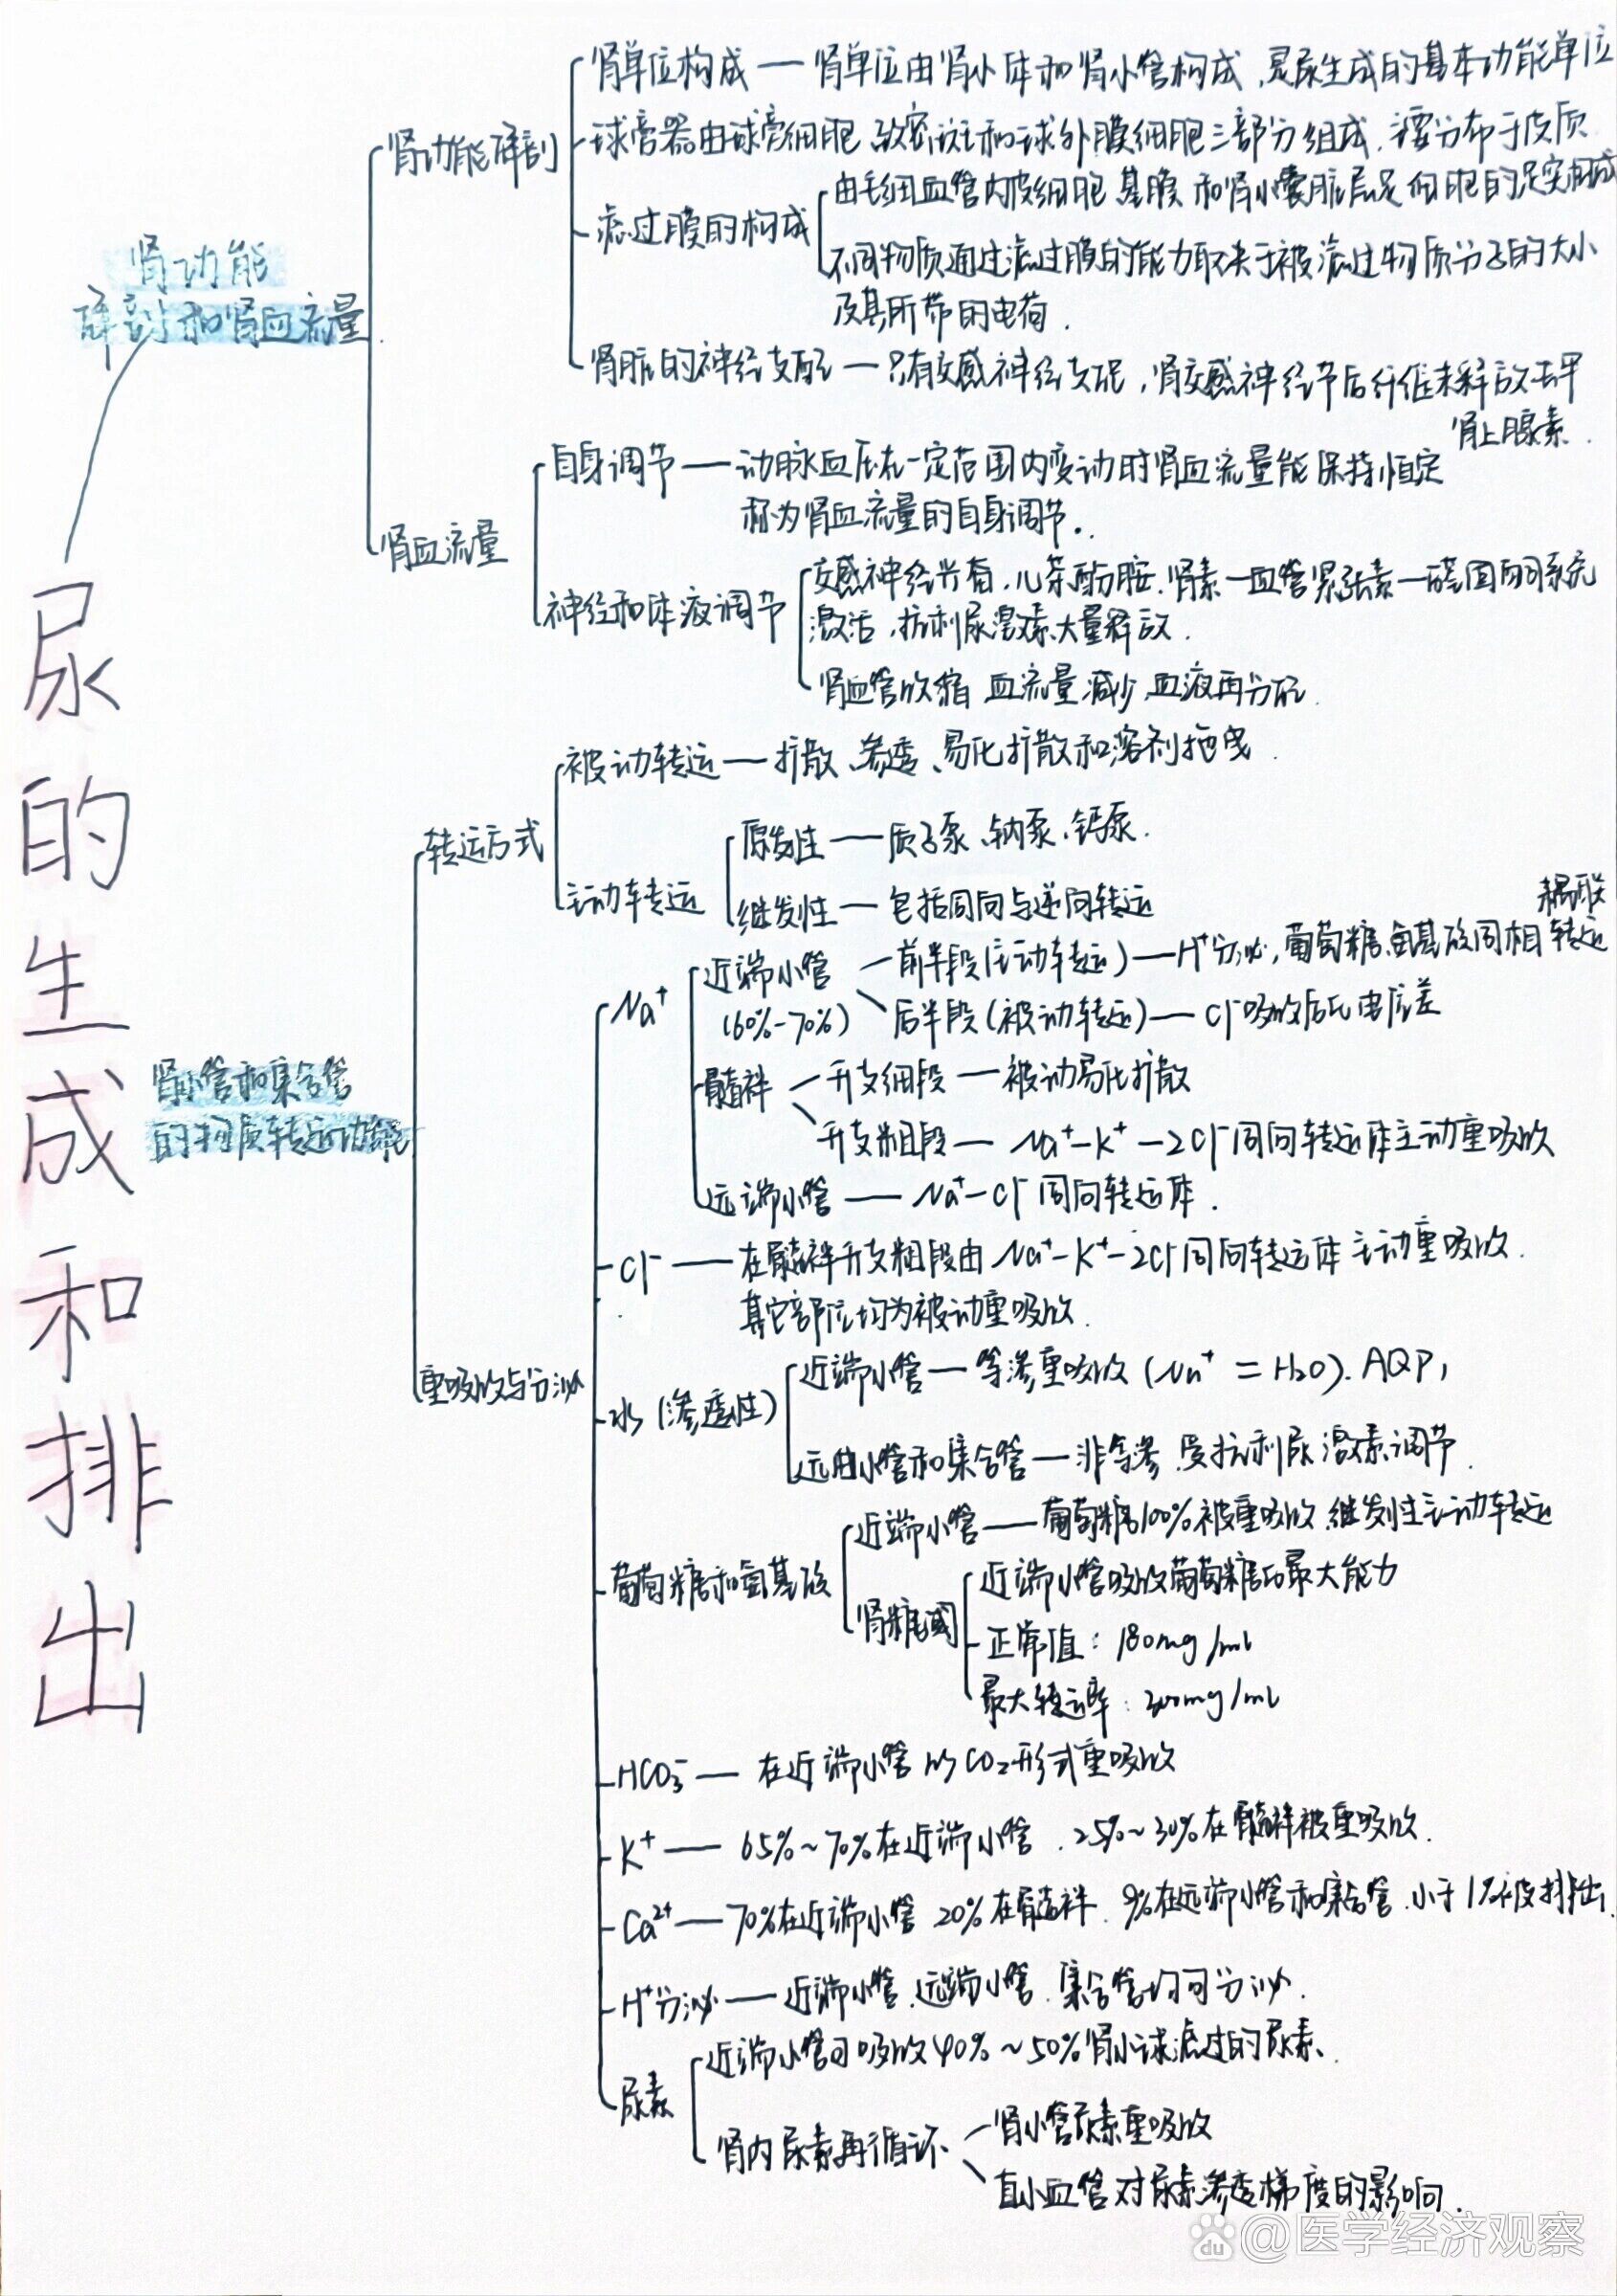 尿的生成和排出
肾功能
解剖和肾血流量
肾功能解剖
肾单位构成 — 肾单位由肾小体和肾小管构成,是尿生成的基本功能单位
球旁器由球旁细胞、致密斑和球外膜细胞三部分组成,主要分布于皮质
滤过膜的构成
由毛细血管内皮细胞、基膜和肾小囊脏层足细胞的足突构成
不同物质通过滤过膜的能力取决于被滤过物质分子的大小
及其所带的电荷.
肾脏的神经支配 — 只有交感神经支配,肾交感神经节后纤维末释放去甲
肾上腺素.
肾血流量
自身调节 — 动脉血压在一定范围内变动时肾血流量能保持恒定
称为肾血流量的自身调节.
神经和体液调节
交感神经兴奋,儿茶酚胺.肾素—血管紧张素—醛固酮系统
激活,抗利尿激素大量释放.
肾血管收缩 血流量减少,血液再分配.
肾小管和集合管
的物质转运功能
转运方式
被动转运 — 扩散、渗透、易化扩散和溶剂拖曳.
主动转运
原发性 — 质子泵、钠泵、钙泵.
继发性 — 包括同向与逆向转运
重吸收与分泌
Na⁺
近端小管
(60%-70%)
前半段(主动转运) — H⁺分泌,葡萄糖、氨基酸同相耦联转运
后半段(被动转运) — Cl⁻吸收后比电位差
髓袢
升支细段 — 被动易化扩散
升支粗段 — Na⁺-K⁺-2Cl⁻同向转运体主动重吸收
远端小管 — Na⁺-Cl⁻同向转运体.
Cl⁻ — 在髓袢升支粗段由Na⁺-K⁺-2Cl⁻同向转运体主动重吸收.
其它部位均为被动重吸收.
水(渗透性)
近端小管 — 等渗重吸收(Na⁺=H₂O).AQP1
远曲小管和集合管 — 非等渗.受抗利尿激素调节.
葡萄糖和氨基酸
近端小管 — 葡萄糖100%被重吸收.继发性主动转运
肾糖阈
近端小管吸收葡萄糖的最大能力
正常值:180mg/ml
最大转运率:300mg/ml
HCO₃⁻ — 在近端小管以CO₂形式重吸收
K⁺ — 65%~70%在近端小管.25%~30%在髓袢被重吸收.
Ca²⁺ — 70%在近端小管 20%在髓袢.9%在远端小管和集合管.小于1%被排出.
H⁺分泌 — 近端小管.远端小管.集合管均可分泌.
尿素
近端小管可吸收40%~50%肾小球滤过的尿素.
肾内尿素再循环
肾小管尿素重吸收
直小血管对尿素渗透梯度的影响.
du @医学经济观察